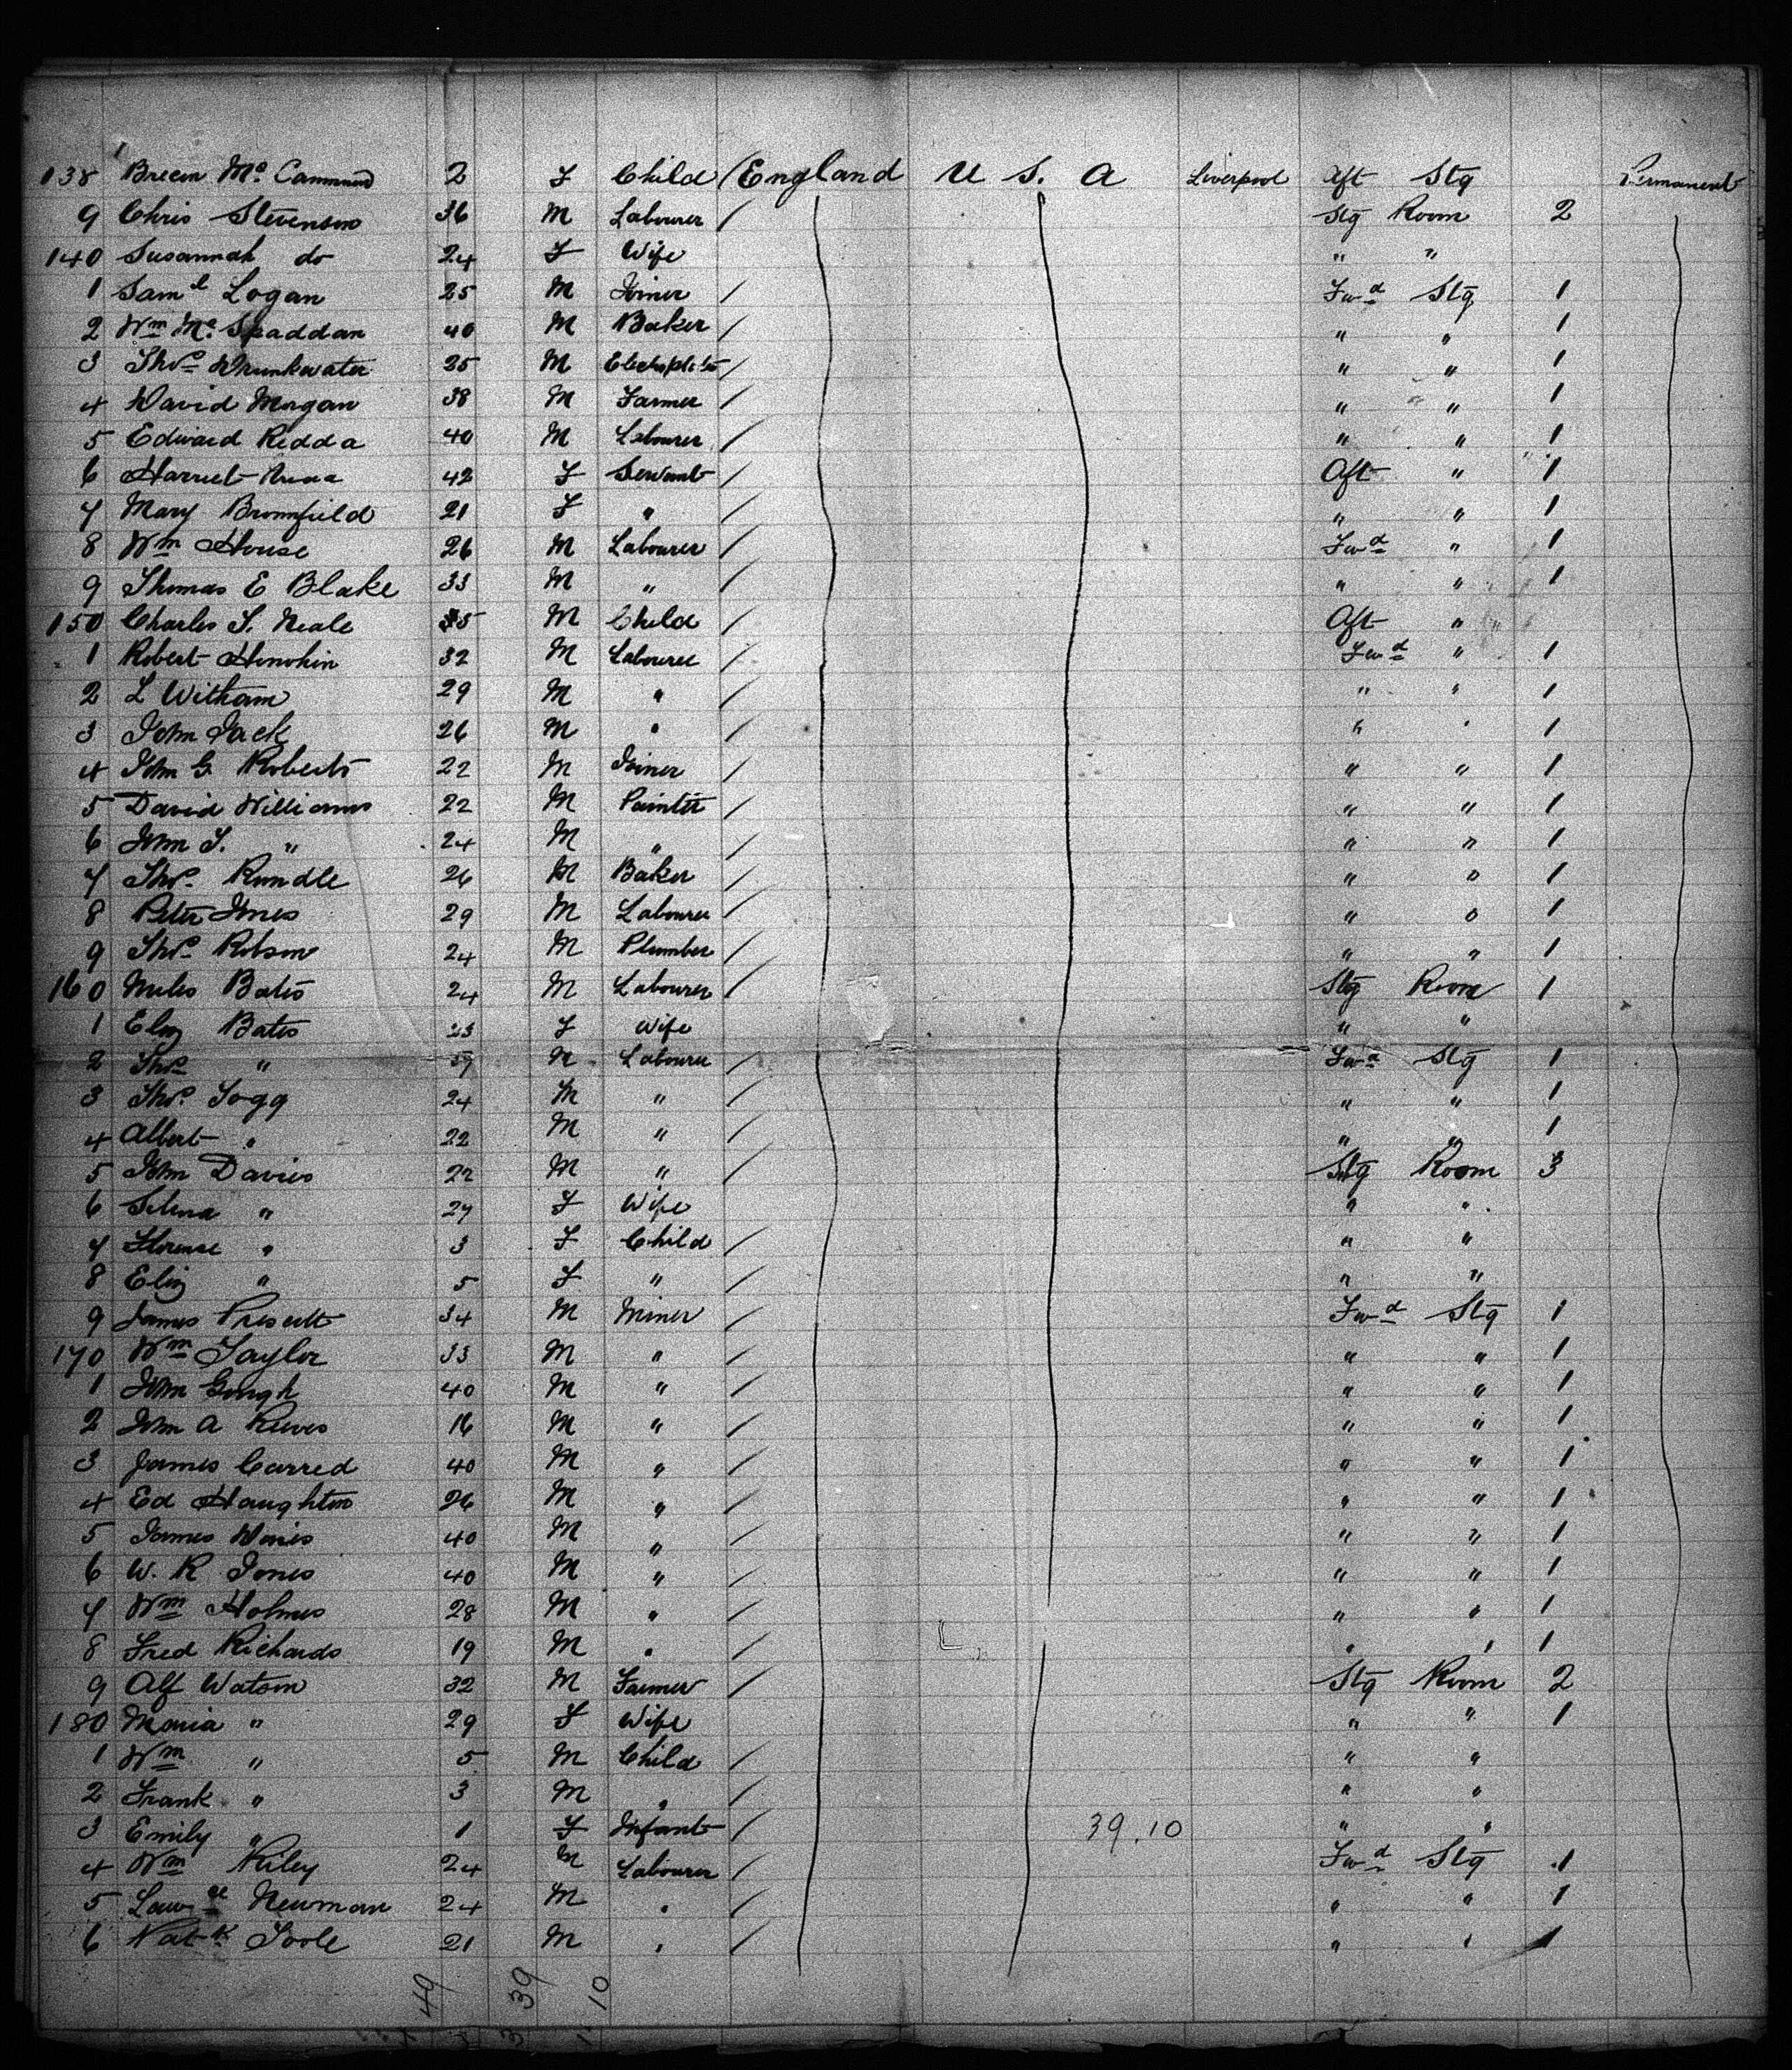 138 Mc Cammond 2 F Child England U S. A Liverpool Aft Stg Permanent
9 Chris Stevenson 36 M Labourer / Stg Room 2
140 Susannah do 24 F Wife " "
1 Saml Logan 25 M Joiner / Fwd Stg 1
2 Wm Mc Spaddan 40 M Baker / " " 1
3 Thos Drinkwater 25 M / " " 1
4 David Morgan 38 M Farmer / " " 1
5 Edward Redda 40 M Labourer / " " 1
6 Harriet 42 F Servant / Aft " 1
7 Mary Bromfield 21 F " / " " 1
8 Wm House 26 M Labourer / Fwd " 1
9 Thomas E Blake 33 M " / " " 1
150 Charles S. Neale 5 M Child / Aft "
1 Robert 32 M Labourer / Fwd " 1
2 L Witham 29 M " / " " 1
3 John Jack 26 M " / " " 1
4 John G Roberts 22 M Joiner / " " 1
5 David Williams 22 M Painter / " " 1
6 Jno T. " 24 M " / " " 1
7 Thos Rundle 26 M Baker / " " 1
8 Peter Jones 29 M Labourer / " " 1
9 Thos Robson 24 M Plumber / " " 1
160 Miles Bates 24 M Labourer / Stg Room 1
1 Eliz Bates 23 F Wife " "
2 Thos " M Labourer / Fwd Stg 1
3 Thos Togg 24 M " / " " 1
4 Albert " 22 M " / " " 1
5 John Davies 22 M " / Stg Room 3
6 Selina " 27 F Wife " "
7 Florence " 3 F Child / " "
8 Eliz " 5 F " / " "
9 James Prescott 34 M Miner / Fwd Stg 1
170 Wm Taylor 33 M " / " " 1
1 John Gough 40 M " / " " 1
2 John A Reeves 16 M " / " " 1
3 James Carred 40 M " / " " 1
4 Ed Haughton 26 M " / " " 1
5 James Davies 40 M " / " " 1
6 W. R Jones 40 M " / " " 1
7 Wm Holmes 28 M " / " " 1
8 Fred Richards 19 M " / " " 1
9 Alf Watson 32 M Farmer / Stg Room 2
180 Maria " 29 F Wife " " 1
1 Wm " 5 M Child / " "
2 Frank " 3 M " / " "
3 Emily " 1 F Infant / 39.10 " "
4 Wm Riley 24 M Labourer / Fwd Stg 1
5 Lawce Newman 24 M " / " " 1
6 Toole 21 M " / " " 1
49 39 10